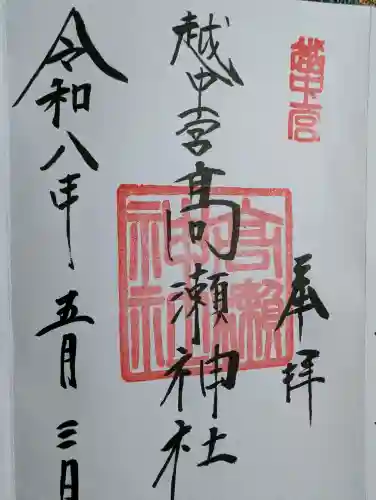 奉拝
越中一宮髙瀬神社
令和八年五月三日
越中一宮
高瀬神社